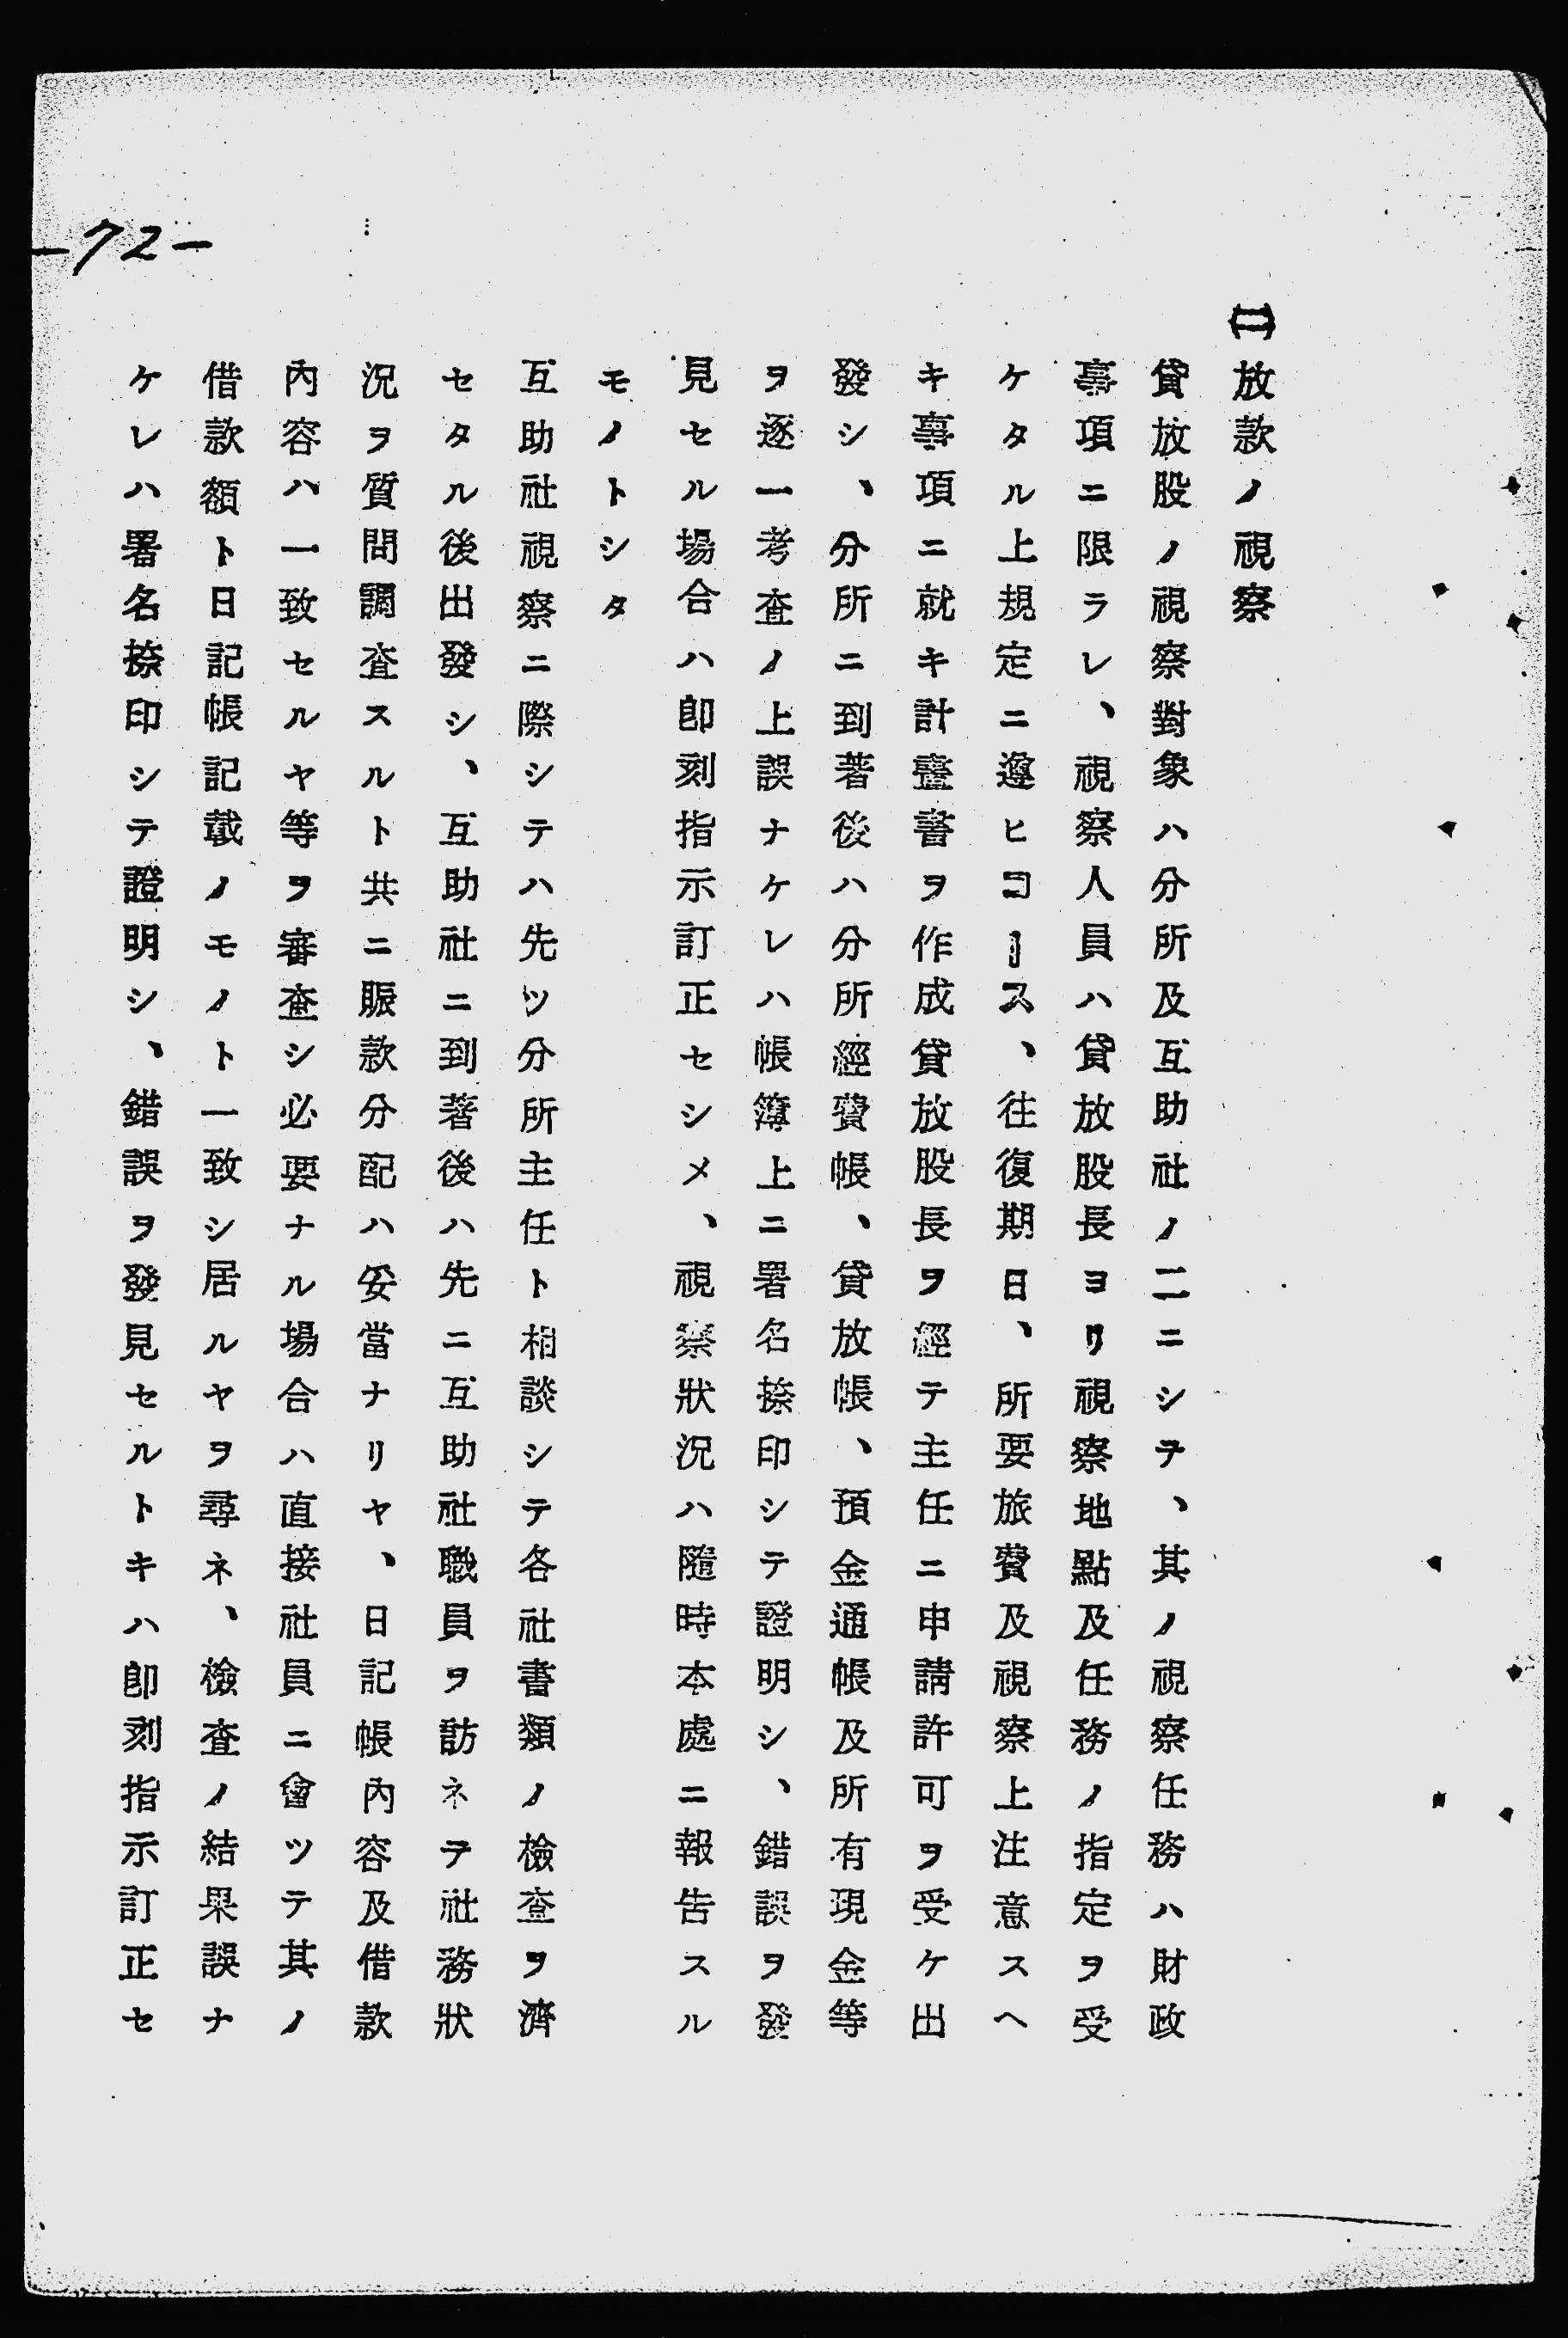 ㈡放款ノ視察
貸放股ノ視察對象ハ分所及互助社ノ二ニシテ、其ノ視察任務ハ財政
事項ニ限ラレ、視察人員ハ貸放股長ヨリ視察地點及任務ノ指定ヲ受
ケタル上規定ニ遵ヒコース、往復期日、所要旅費及視察上注意スヘ
キ事項ニ就キ計畫書ヲ作成貸放股長ヲ經テ主任ニ申請許可ヲ受ケ出
發シ、分所ニ到著後ハ分所經費帳、貸放帳、預金通帳及所有現金等
ヲ逐一考査ノ上誤ナケレハ帳簿上ニ署名捺印シテ證明シ、錯誤ヲ發
見セル場合ハ卽刻指示訂正セシメ、視察狀況ハ隨時本處ニ報告スル
モノトシタ
互助社視察ニ際シテハ先ツ分所主任ト相談シテ各社書類ノ檢査ヲ濟
セタル後出發シ、互助社ニ到著後ハ先ニ互助社職員ヲ訪ネテ社務狀
況ヲ質問調査スルト共ニ賑款分配ハ妥當ナリヤ、日記帳內容及借款
內容ハ一致セルヤ等ヲ審査シ必要ナル場合ハ直接社員ニ會ツテ其ノ
借款額ト日記帳記載ノモノト一致シ居ルヤヲ尋ネ、檢査ノ結果誤ナ
ケレハ署名捺印シテ證明シ、錯誤ヲ發見セルトキハ卽刻指示訂正セ
-72-